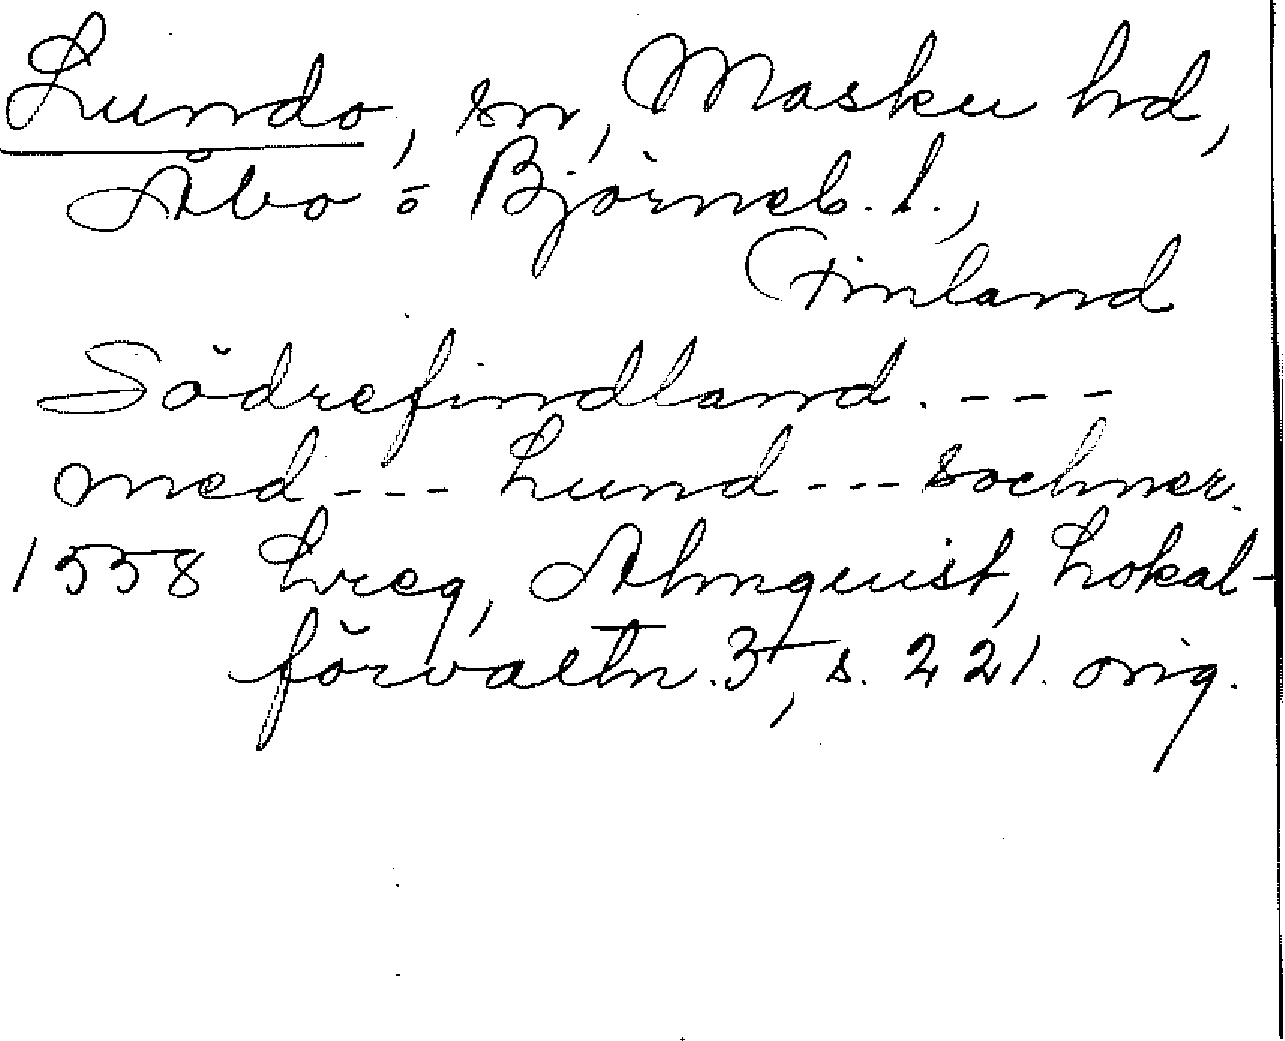 Lundo, sn, Masku hd,
Åbo o Björneb. l.,
Finland
Södrefindland. ---
med --- Lund --- sochner.
1558 Lreg, Almquist, Lokal-
förvaltn. 3, s. 221. orig.